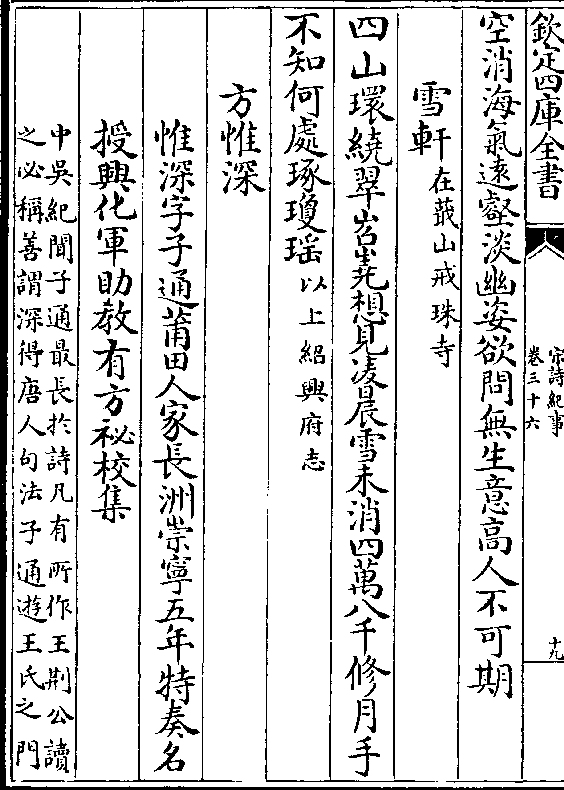 欽定四庫全書
宋詩紀事
卷三十六
十九
空消海氣遠壑淡幽姿欲問無生意高人不可期
雪軒在蕺山戒珠寺
四山環繞翠岧嶤想見凌晨雪未消四萬八千修月手
不知何處琢瓊瑤以上紹興府志
方惟深
惟深字子通莆田人家長洲崇寧五年特奏名
授興化軍助教有方祕校集
中吳紀聞子通最長於詩凡有所作王荆公讀
之必稱善謂深得唐人句法子通遊王氏之門